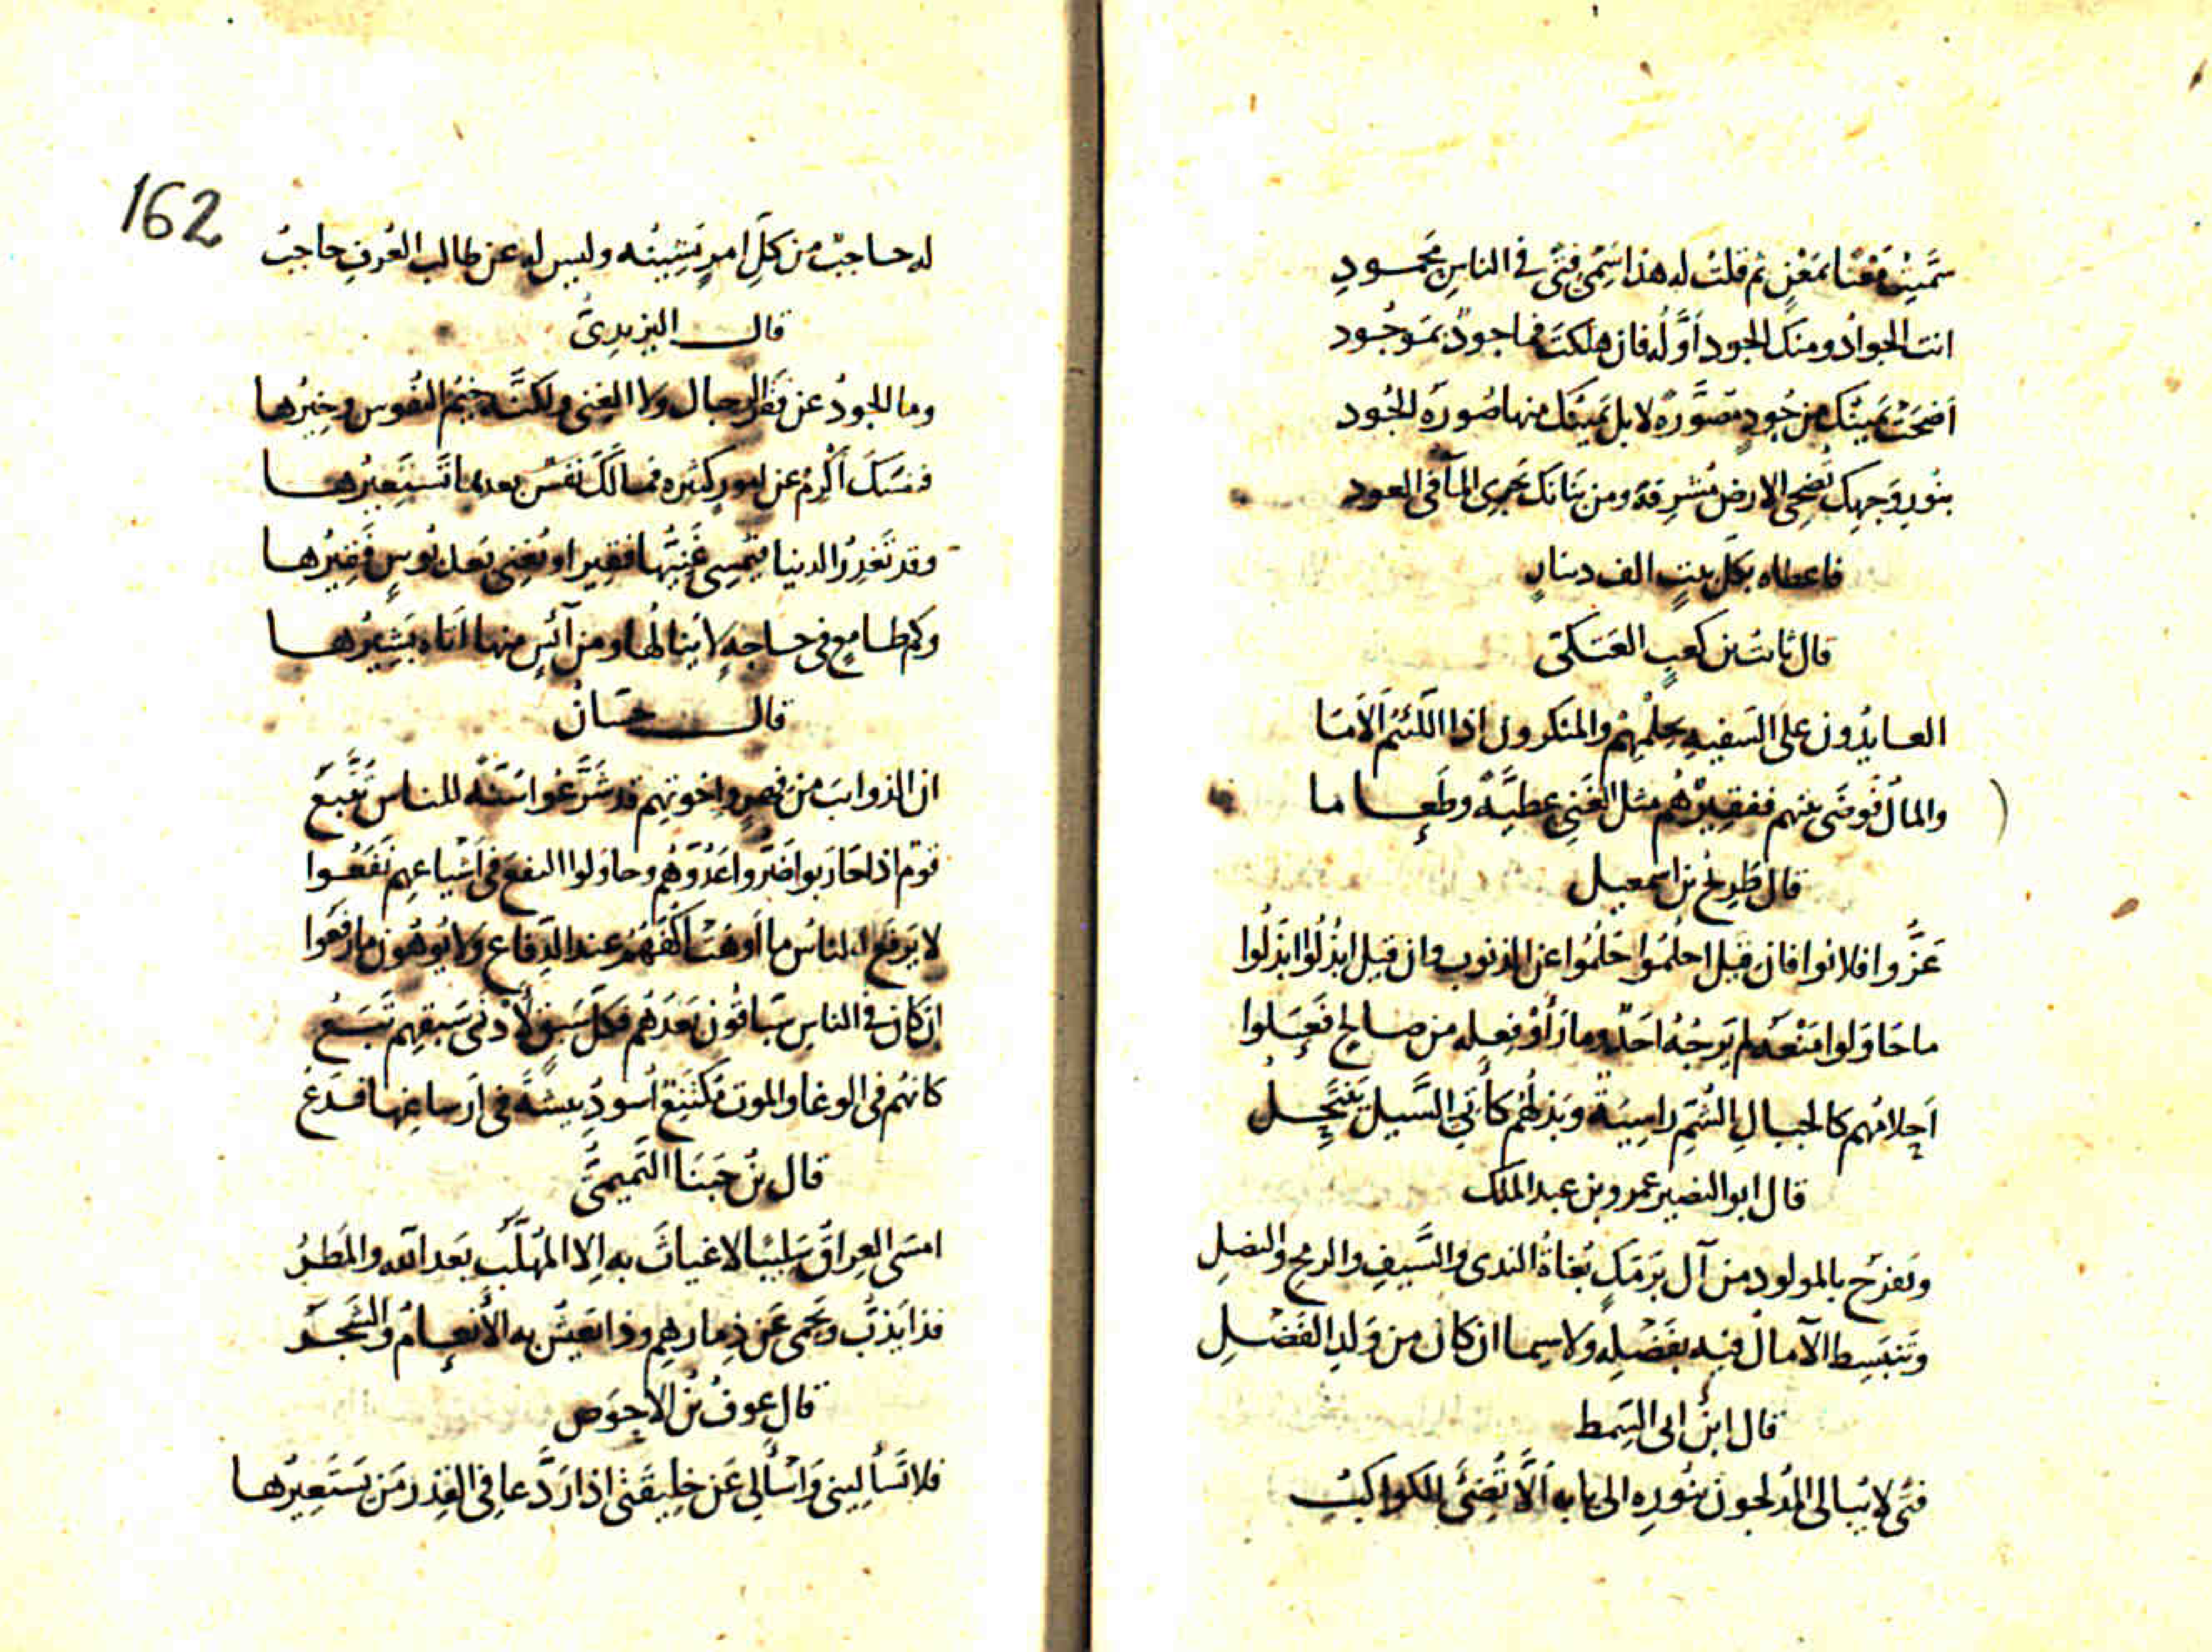 سَمَّيْتُ مَعْنًا بمَعْنٍ ثم قلتُ له هذا سَمِيُّ فتًى في الناسِ مَحمودِ
انت الجوادُ ومنك الجود أوَّلُه فان هلكتَ فما جودٌ بمَوجُود
أضحَتْ يمينُك من جُودٍ مصَوَّرةً لا بل يمينُك منها صُورَةُ الجُود
بنُورِ وَجهِك تُضحِى الارضُ مُشرِقةً ومن بنَانك يجرى المآ فى العود
فاعطاه بكل بيتٍ الف دينارٍ
قال ثابت بن كعبٍ العَتَكىّ
العايدُون على السَفيهِ بحِلْمِهِم والمنكرون اذا
والمالُ فَوضَى بينهم ففقِيرُهُم مثل الغَنِى عطيَّةً وطَعاما
قال طُرَيح بن اسمعيل
عَزُّوا فلانوا فان قيل احلُمُوا حَلُمُوا عن الذنوب وان قيل ابذُلُوا بَذَلُوا
ما حَاوَلوا مَنْعَه لم يَرجُهُ احَدٌ وما رَأَوْ فِعله من صالحٍ فَعَلوا
أحلامُهم كالجبالِ الشُمِّ راسِيَةً وبَذلُهُم كأتِيّ السَّيل
قال ابو النضير عمرو بن عبد الملك
ونفرَح بالمولود من آل بَرمَكٍ بُغاةُ الندى والسَّيفِ والرمح والنصلِ
وتَنبَسِط الآمالُ فيه بفَضلِه ولا سيما ان كان من وَلَدِ الفَضلِ
قال ابنُ ابى السِمط
فتًى لا يُبالى المُدلجون بنُورِه الى بابه ألَّا تُضِئَ الكواكبُ
162
له حاجبٌ من كلِّ امرٍ يَشِينُه وليس له عن طالب العُرفِ حاجبُ
قال اليزيدِىُّ
وما الجودُ عن فَقرِ الرجال ولا الغِنى ولكنَّه خِيمُ النفُوس وخِيرُها
فنفسَكَ أكرِم عن امورٍ كثيره فمالَكَ نفسٌ بعدها تَستَعِيرُها
وقد تَغدِرُ الدنيا فيُمسِى غَنِيُّها فقِيرا ويُغنِى بَعد بُوسٍ فَقِيرُها
وكم طامِع فى حاجةٍ لا يَنالُها ومن آئسٍ منها أتاه بَشِيرُها
قال حسَانْ
ان الذوائبَ من فِهرٍ واِخوتِهم قد شَرَّعُوا سُنّةً للناسِ تُتَّبعُ
قومٌ اذا حَارَبوا ضَرّوا عَدُوَّهُم وحاولوا النفعَ فى أشياعِهِم نَفَعُوا
لا يَرفَع الناسُ ما أوهَتْ أكُفُّهُمُ عند الدِّفاع ولا يُوهُون ما رَفَعُوا
اِن كان فى الناسِ سَبّاقُون بَعدَهُم فكل سَبقٍ لأدنَى سَبقِهم تَبَعُ
كانهُم فى الوغا والموت مُكتَنِعٌ اُسودُ بِيشَةَ فى اَرساغِها فَدَعُ
قال بنُ حَبنَا التَّميمىّ
امسَى العِراقُ سَلِيبًا لا غياثَ به اِلا المُهَلَّبُ بَعد الله والمَطرُ
فذا يَذبُّ ويَحمى عَن ذِمارهِم وذا تعِيشُ به الأنعامُ والشَجَرُ
قال عوفُ بنُ الاحوَص
فلا تَسألِينى وَاسْألى عَن خلِيقَتى اذا رَدَّ عافِى القِدرِ مَن يَستَعِيرُها